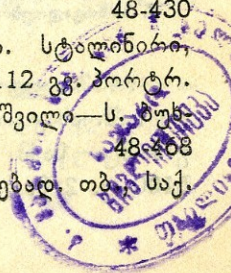 48-430
. სტალინირი,
112 გვ. პორტრ.
შვილი—ს. ბუხ-
48-468
ებად. თბ., საქ.